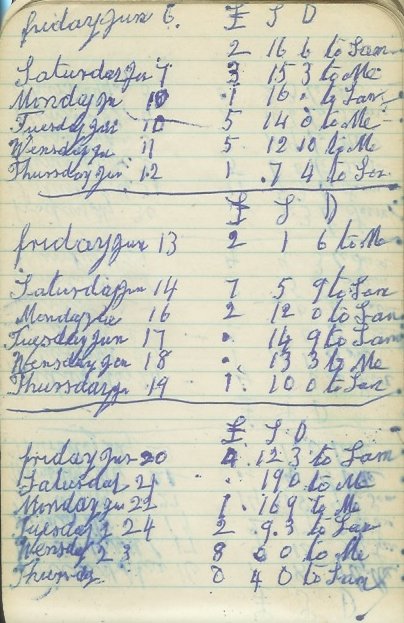 friday Jun 6. £ S D
2 16 6 to Sam
Saturday Jun 7 3 15 3 to Me
Monday Jun 1 10 to Sam
Tuesday Jun 10 5 14 0 to Me
Wensday Jun 11 5 12 10 to Me
Thursday Jun 12 1 .7 4 to Sam
£ S D
friday Jun 13 2 1 6 to Me
Saturday Jun 14 7 5 9 to Sam
Monday 16 2 12 0 to Sam
Tuesday Jun 17 . 14 9 to Sam
Wensday Jun 18 . 13 3 to Me
Thursday Jun 19 1 10 0 to Sam
£ S D
friday Jun 20 4 12 3 to Sam
Saturday 21 . 19 0 to Me
Monday Jun 1 . 16 9 to Me
Tuesday 24 2 9.3 to Sam
Wensday 8 0 0 to Me
Thursday 0 4 0 to Sam